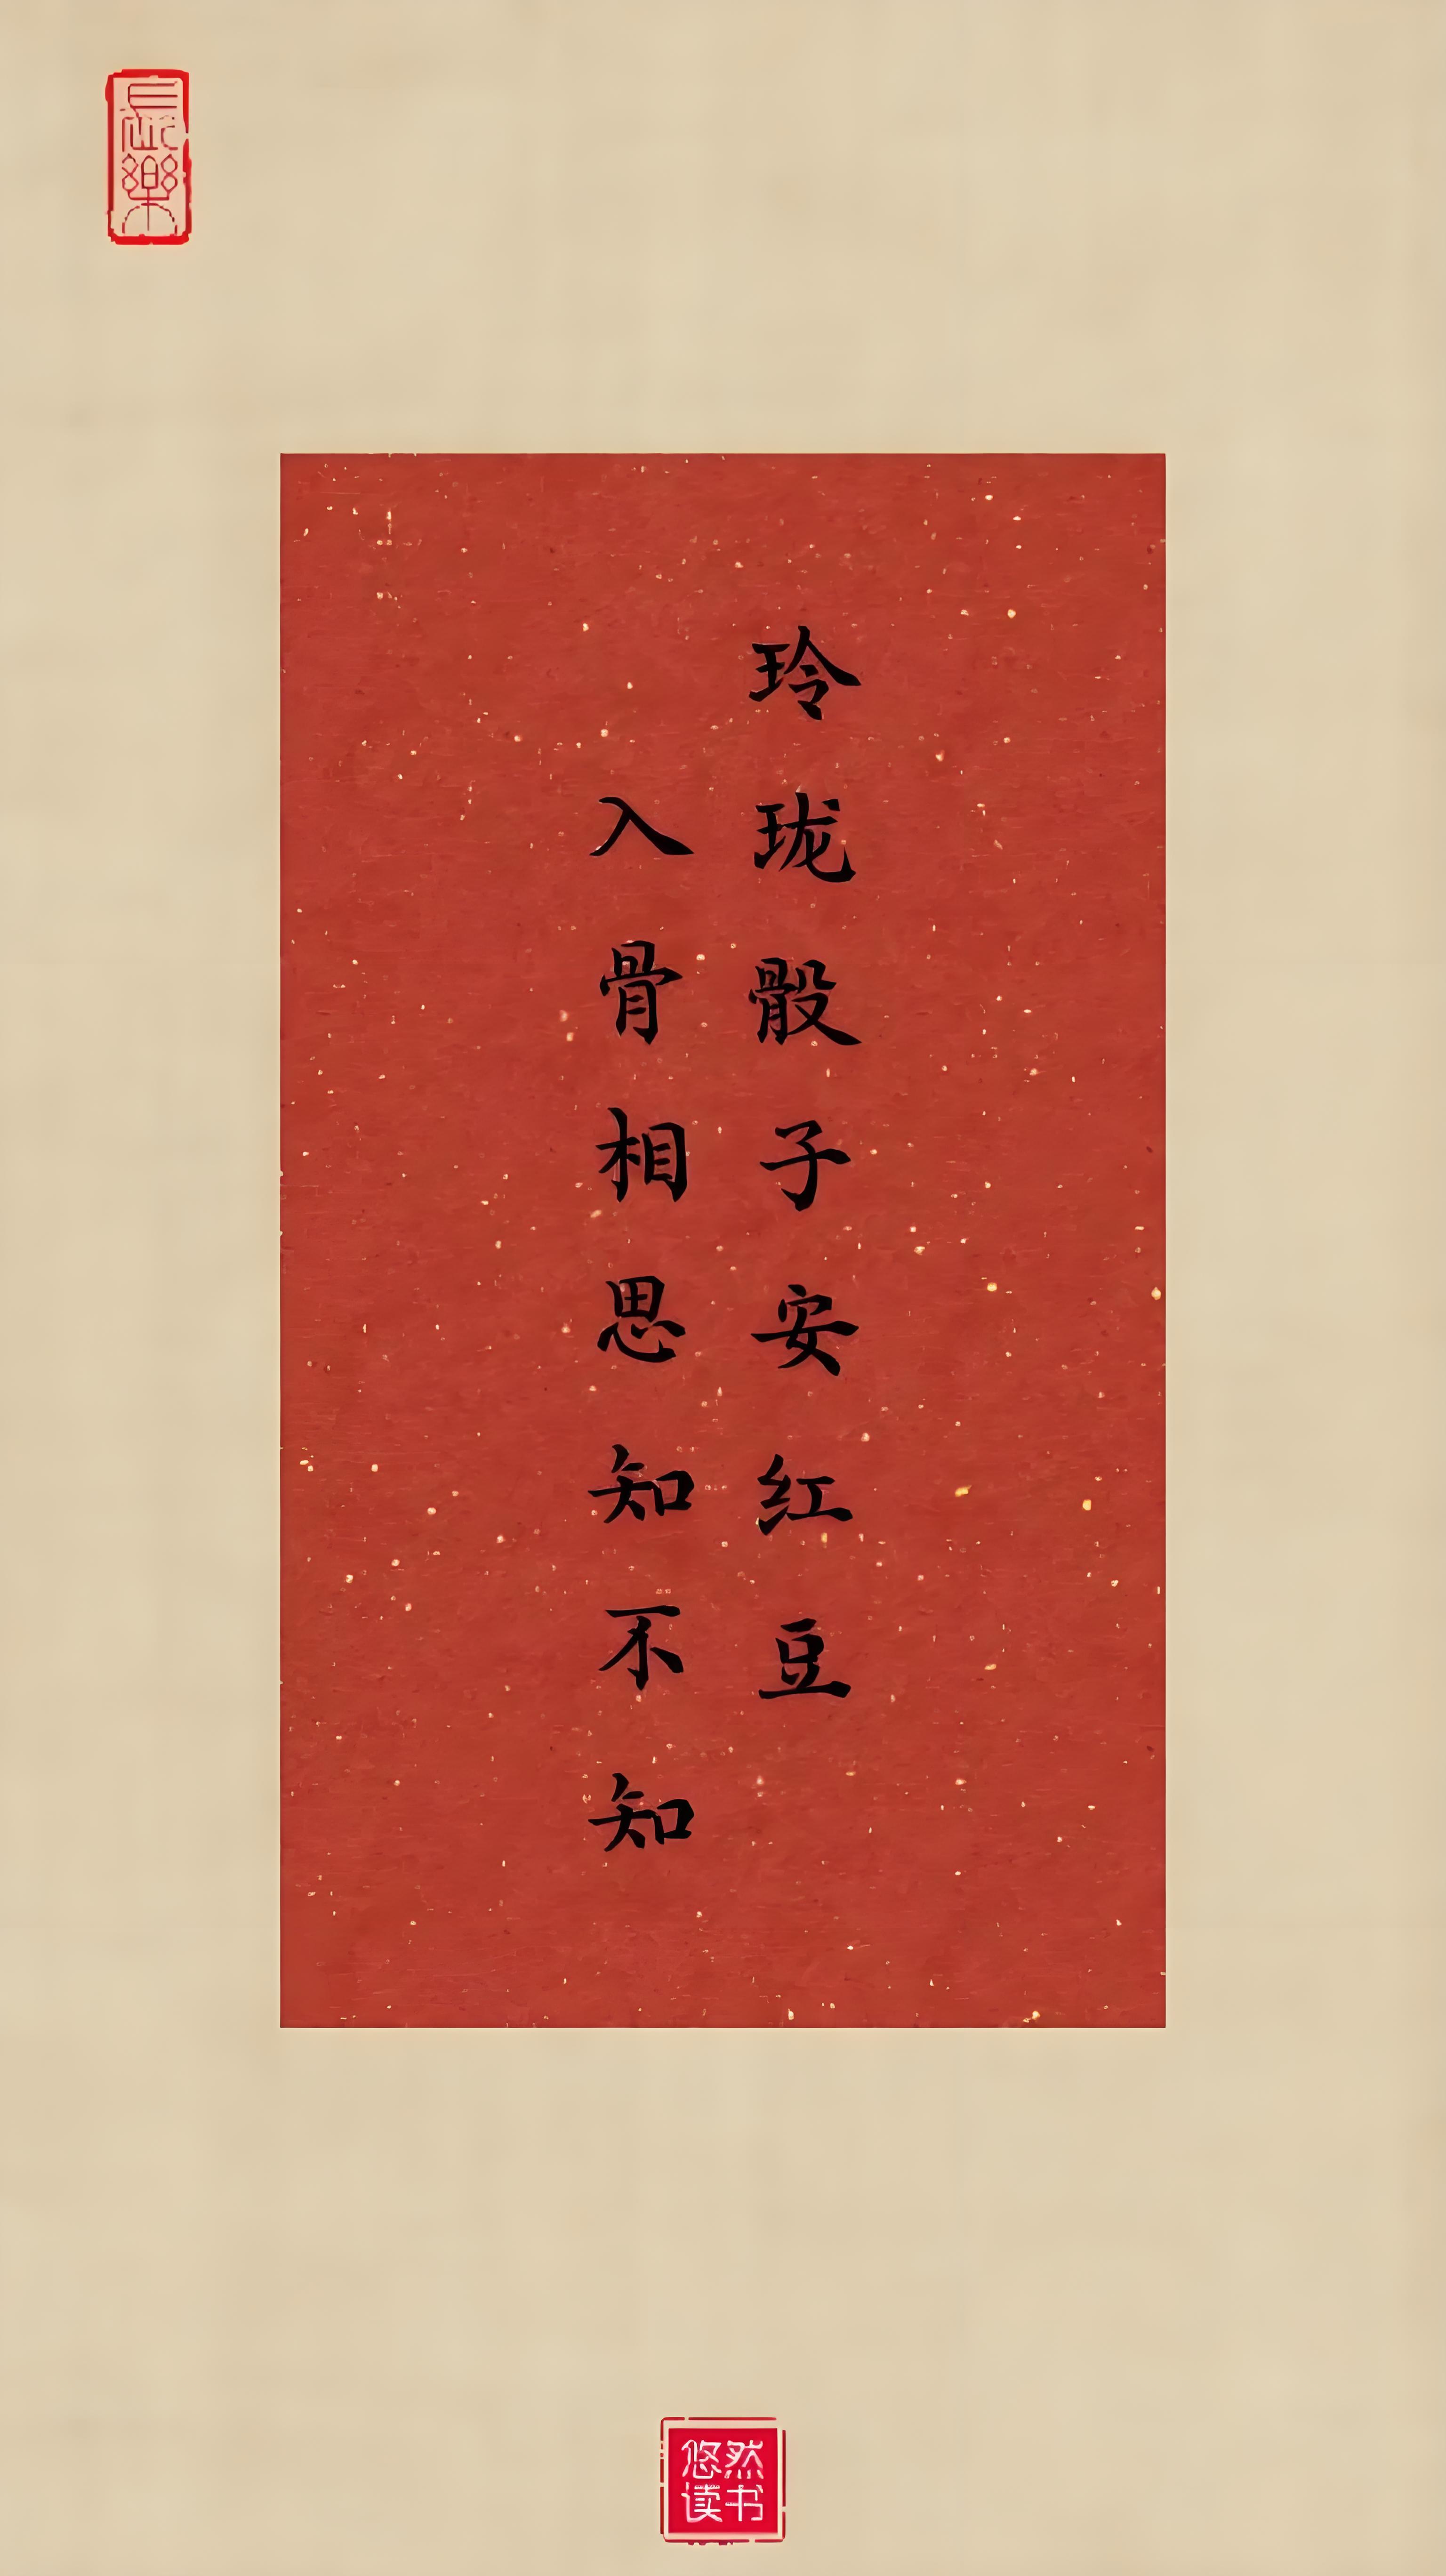 玲珑骰子安红豆
入骨相思知不知
長樂
悠然
读书